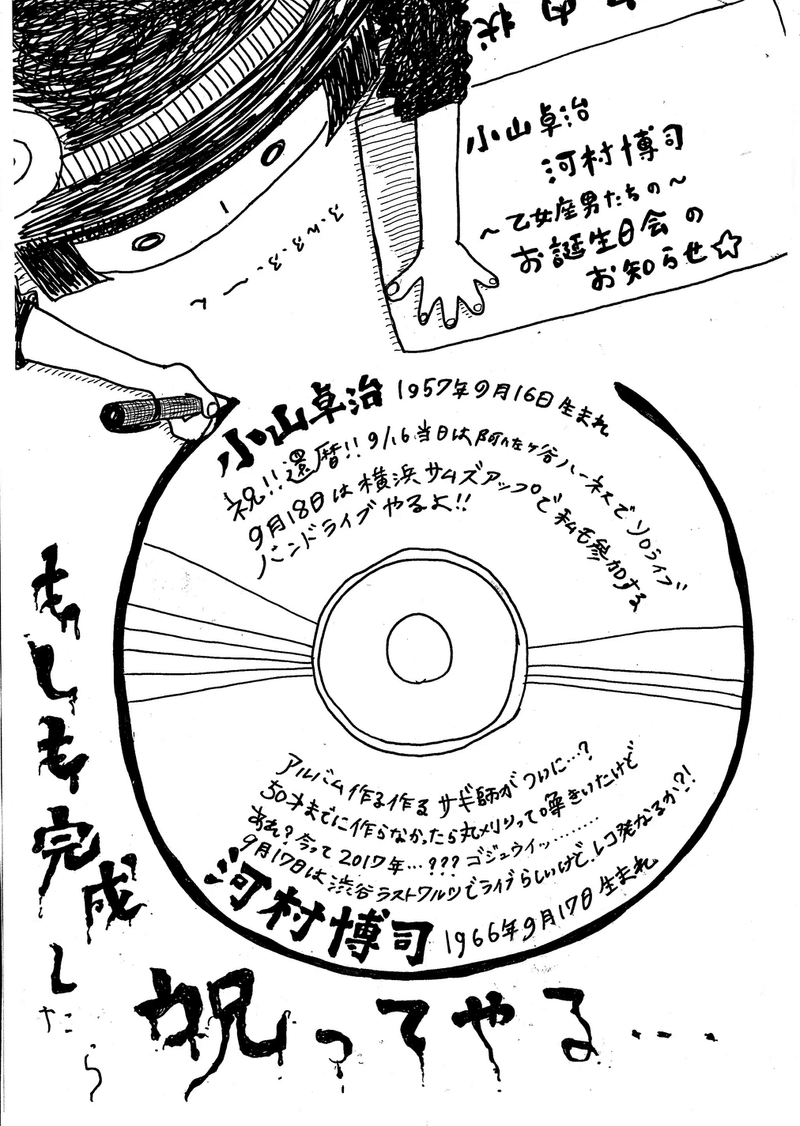 内状
小山卓治
河村博司
～乙女座男たちの～
お誕生日会の
お知らせ☆
ふんふふ～ん
小山卓治 1957年9月16日生まれ
祝!!還暦!! 9/16当日は阿佐ヶ谷ハーネスでソロライブ
9月18日は横浜サムズアップで私も参加する
バンドライブやるよ!!
アルバム作る作るサギ師がついに…?
50才までに作らなかったら丸メリって囁きいたけど
あれ?今って2017年…???ゴジュウイッ………
9月17日は渋谷ラストワルツでライブらしいけど、レコ発なるか?!
河村博司 1966年9月17日生まれ
もしも完成したら
祝ってやる…